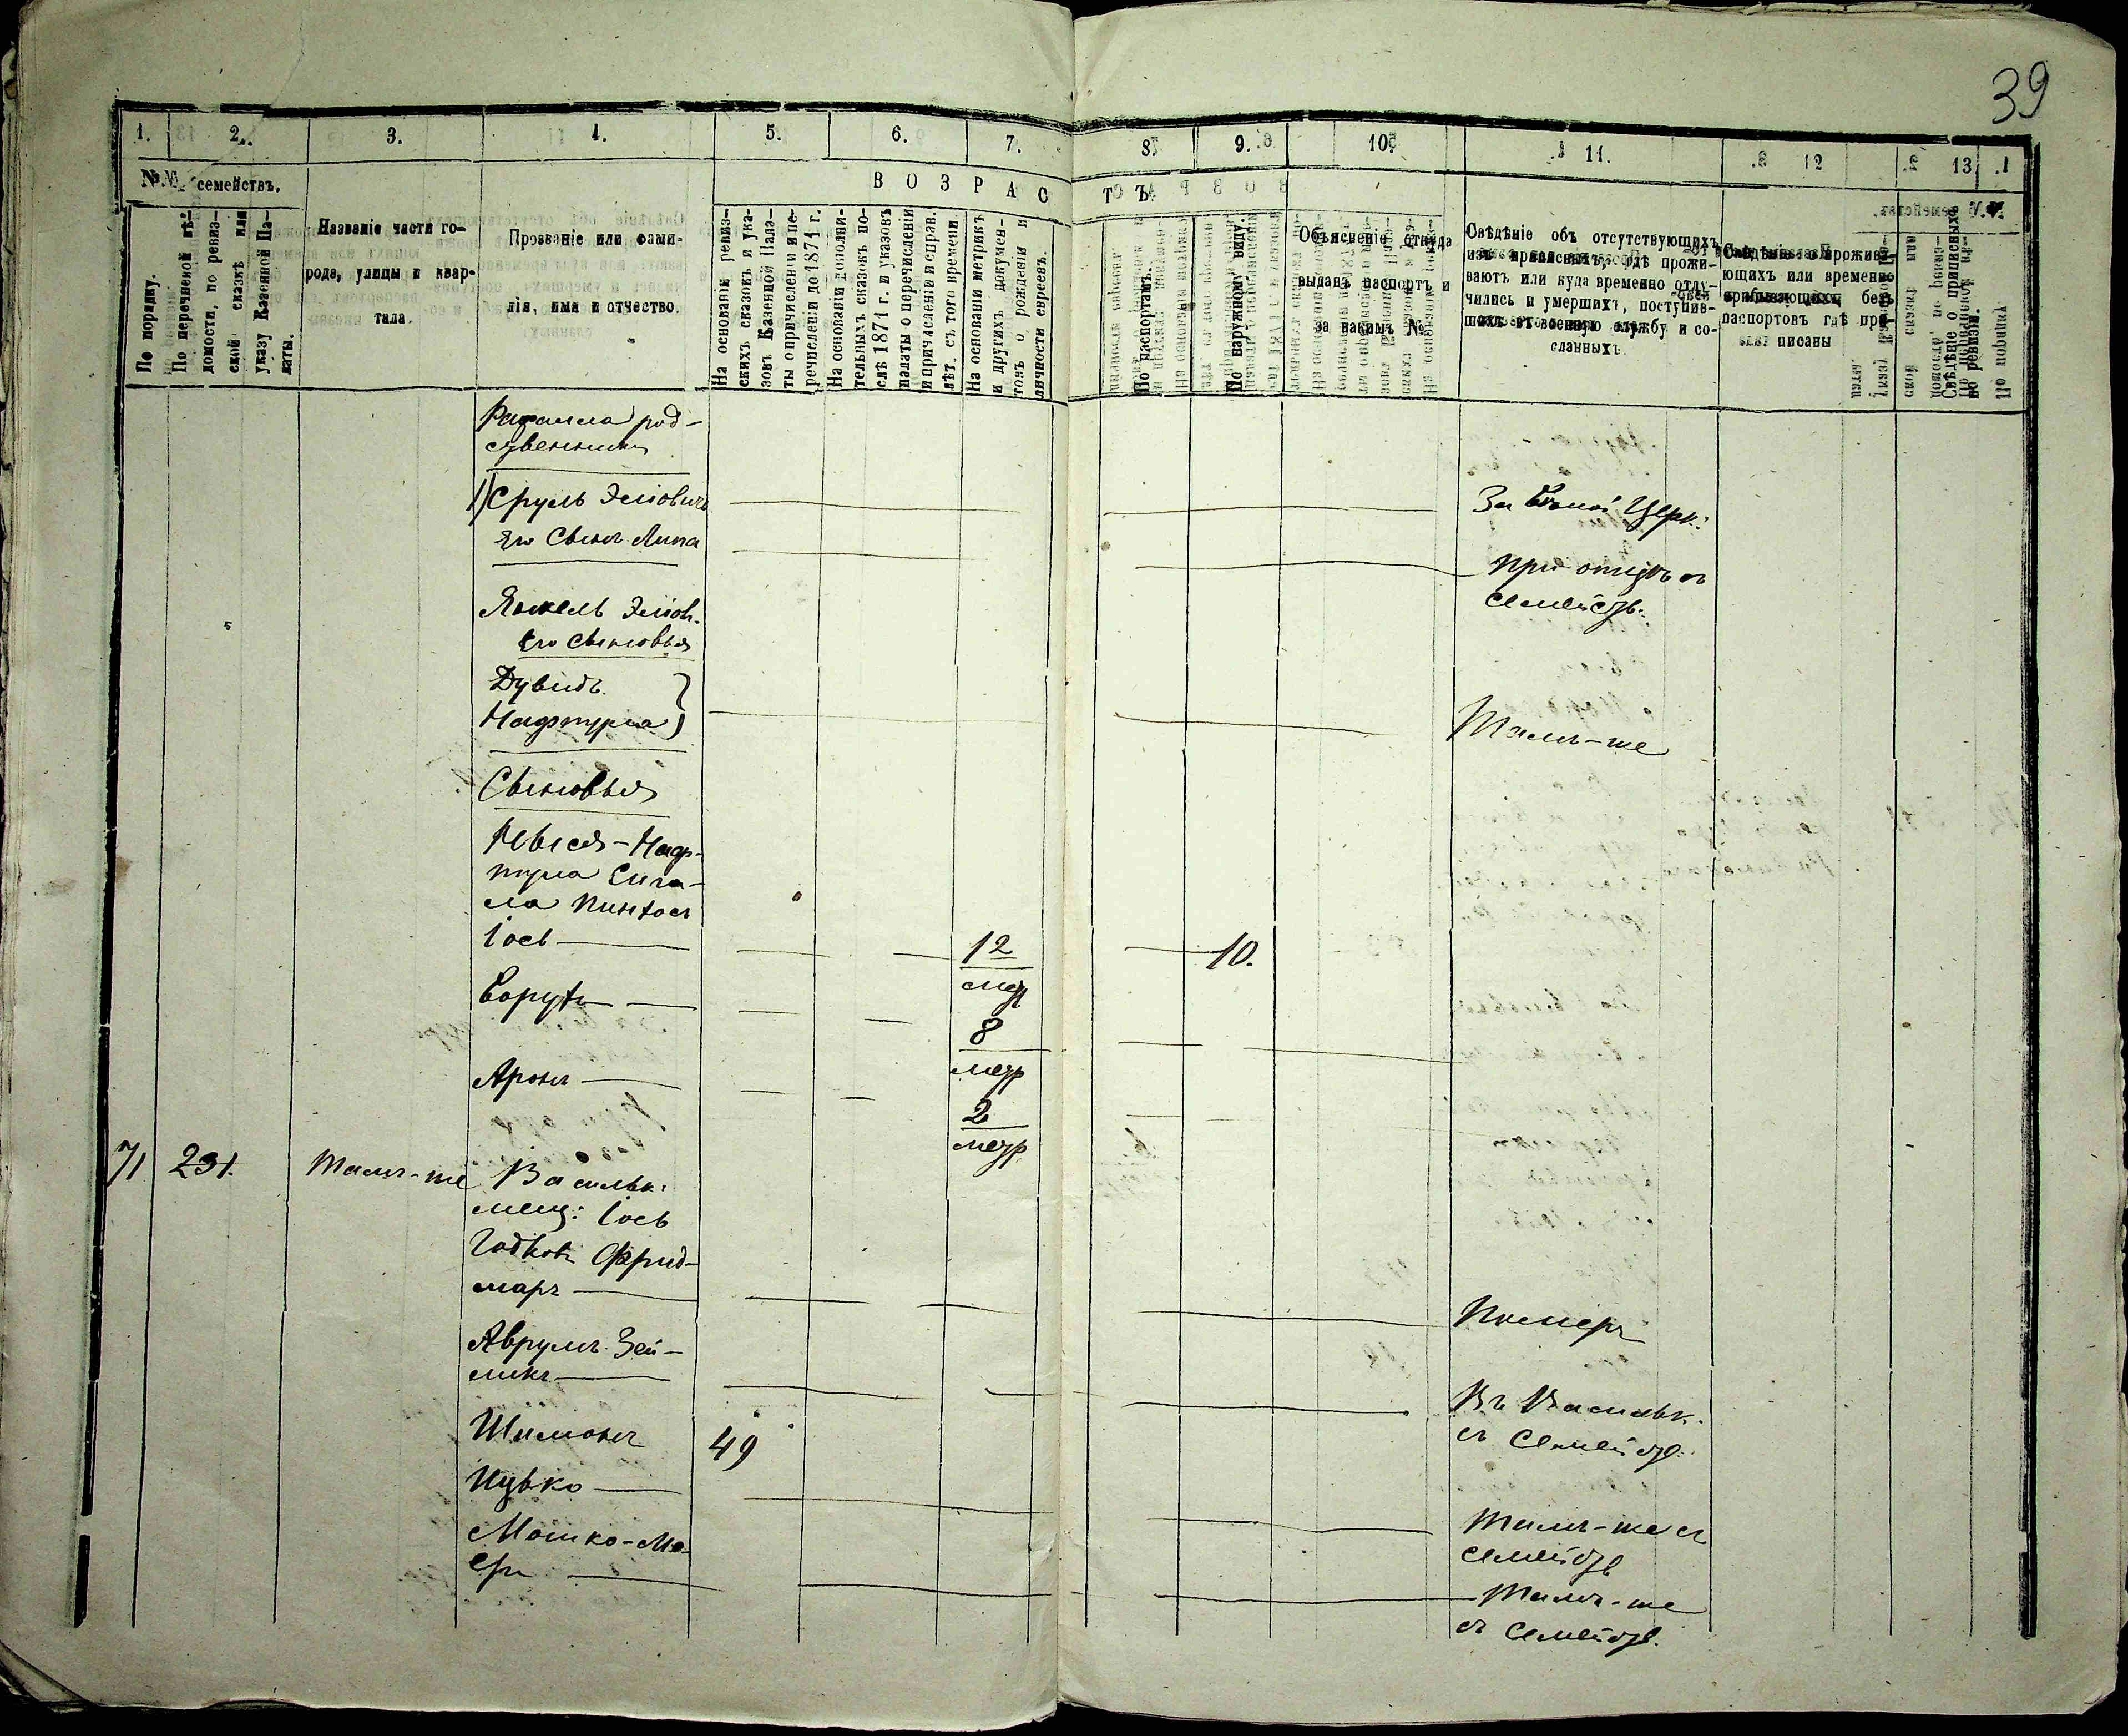 39
1. 2. 3. 4. 5. 6. 7. 8. 9. 10. 11. 12 13
№№ семействъ.
По порядку.
По перечневой вѣ-
домости, по ревиз-
ской сказкѣ или
указу Казенной Па-
латы.
Названіе части го-
рода, улицы и квар-
тала.
Прозваніе или фами-
лія, имя и отчество.
ВОЗРАСТЪ
На основаніи ревиз-
скихъ сказокъ и ука-
зовъ Казенной Пала-
ты о причисленіи и пе-
речисленіи до 1874 г.
На основаніи дополни-
тельныхъ сказокъ по-
слѣ 1874 г. и указовъ
палаты о перечисленіи
и причисленіи и справ.
лѣт. съ того времени.
На основаніи метрикъ
и другихъ докумен-
товъ о рожденіи и
личности евреевъ.
По паспортамъ.
По наружному виду.
Объясненіе откуда
выданъ паспортъ и
за какимъ №
Свѣдѣніе объ отсутствующихъ
изъ приписныхъ, гдѣ прожи-
ваютъ или куда временно отлу-
чились и умершихъ, поступив-
шихъ въ военную службу и со-
сланныхъ.
Свѣдѣніе о прожива-
ющихъ или временно
пребывающихъ безъ
паспортовъ гдѣ при-
писаны
Свѣдѣніе о приписныхъ
по ревизіи.
Рафаила род-
ственники
1) Сруль Эліовичъ
За Бѣлой Церк:
Его Сынъ Липа
При отцѣ съ
семейств.
Янкель Эліов.
Его сыновья
Дувидъ
Нафтула
Тамъ-же
Сыновья
Овсея-Наф-
тула Сига-
ла Пинхосъ
Іось 12 мет 10.
Борухъ 8 метр
Аронъ 2 метр
71 231. Тамъ-же Васильк.
мещ: Іось
Годковъ Фрид-
маръ
Померъ
Аврумъ Зей-
ликъ
Въ Васильк.
съ семейств.
Шимонъ 49
Ицько
Тамъ-же съ
семейств
Мошко-Ме-
еръ
Тамъ-же
съ семейств.